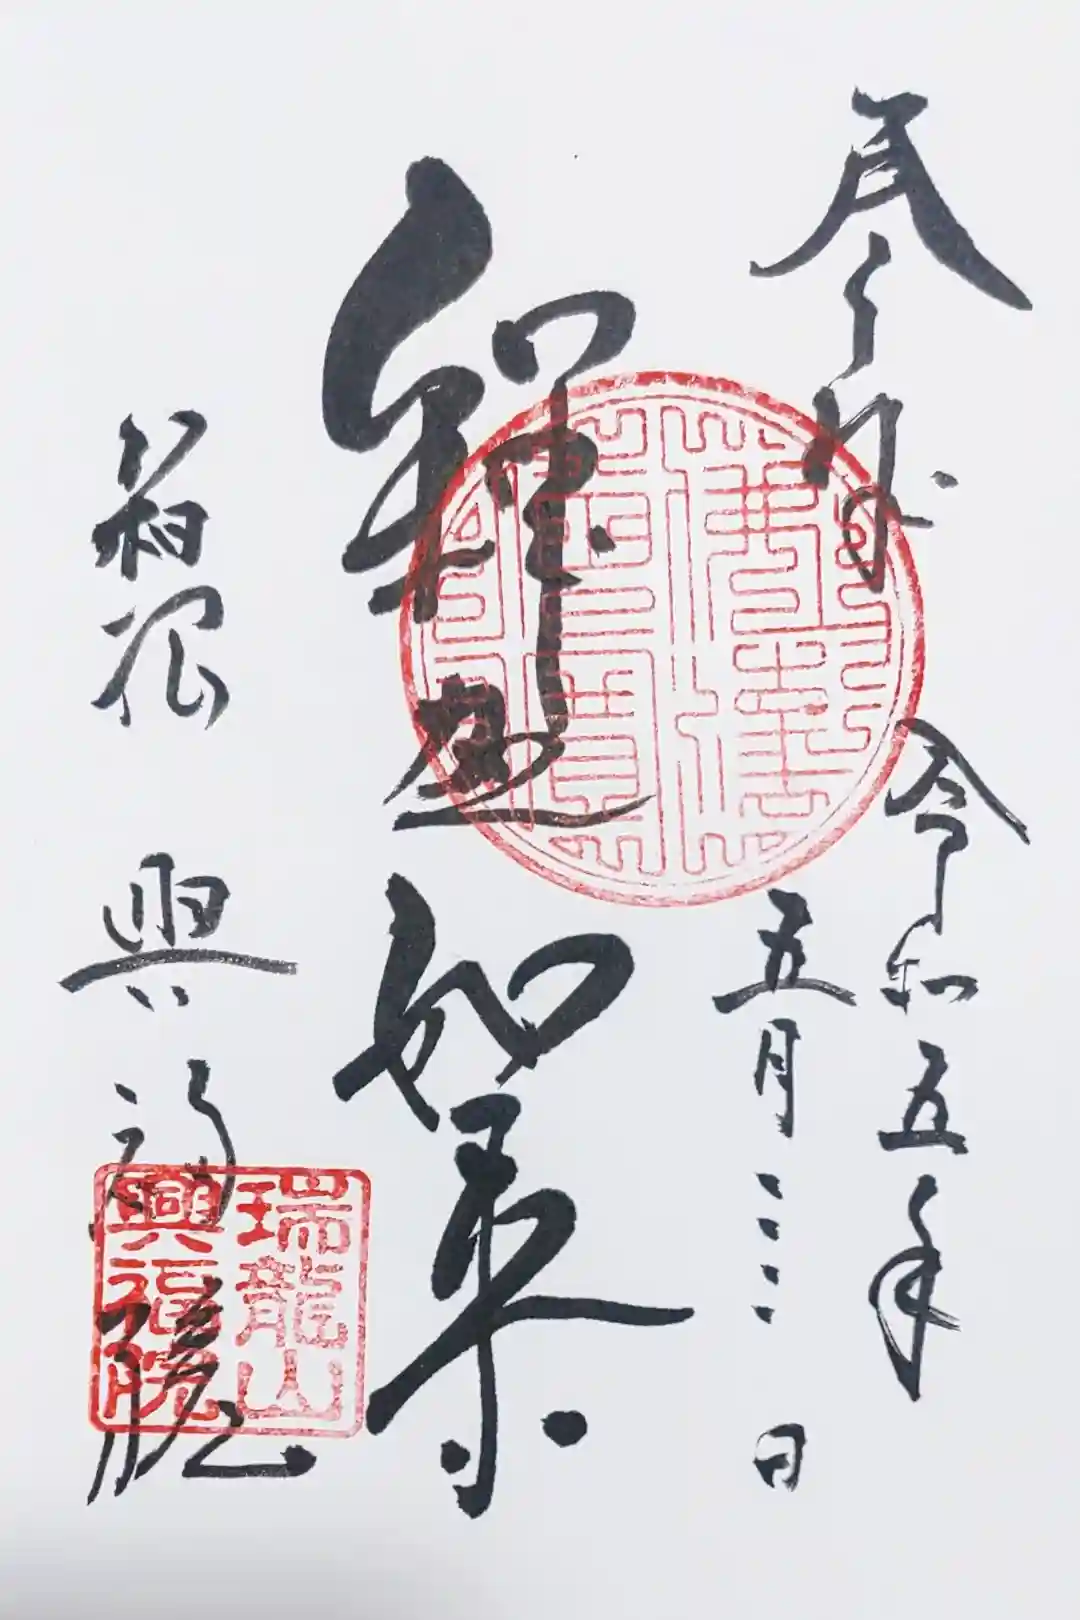 奉拝
令和五年
五月
日
釋迦如来
箱根
興福院
瑞龍山
興福院